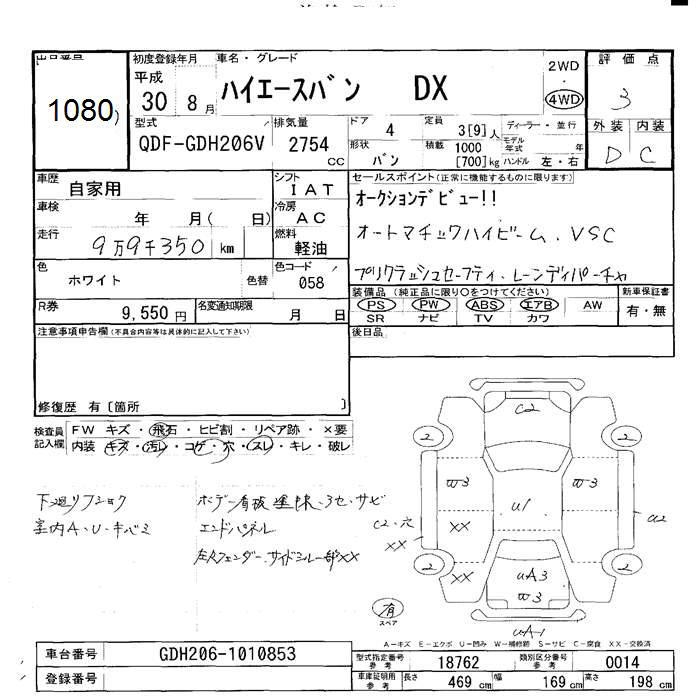 出品番号
1080
初度登録年月
平成
30 8 月
車名・グレード
ハイエースバン DX
2WD
・
4WD
評価点
3
型式
QDF-GDH206V
排気量
2754
cc
ドア
4
定員
3[9] 人
ディーラー・並行
形状
バン
積載
1000
[700] kg
モデル年式 年
ハンドル 左・右
外装 内装
D C
車歴
自家用
シフト
IAT
車検
年 月( 日)
冷房
AC
走行
9万9千350 km
燃料
軽油
色
ホワイト
色替
色コード
058
R券
9,550 円
名変通知期限
月 日
セールスポイント(正常に機能するものに限ります)
オークションデビュー!!
オートマチックハイビーム、VSC
プリクラッシュセーフティ、レーンディパーチャ
装備品 (純正品に限り〇をつけてください)
PS PW ABS エアB AW
SR ナビ TV カワ
新車保証書
有・無
注意事項申告欄(不具合内容等は具体的に記入して下さい)
後日品
修復歴 有〔箇所 〕
検査員記入欄
FW キズ・飛石・ヒビ割・リペア跡・×要
内装 キズ・汚レ・コゲ・穴・スレ・キレ・破レ
室内A・U・キバミ
エンドパネル
C2
2 2
W3 W3
U1
C2・穴
XX
XX
U2
2 2
XX
UA3
W3
UA1
有
スペア
A-キズ E-エクボ U-凹み W-補修跡 S-サビ C-腐食 XX-交換済
車台番号
GDH206-1010853
登録番号
型式指定番号
参考
18762
類別区分番号
参考
0014
車庫証明用
参考
長さ 469 cm 幅 169 cm 高さ 198 cm